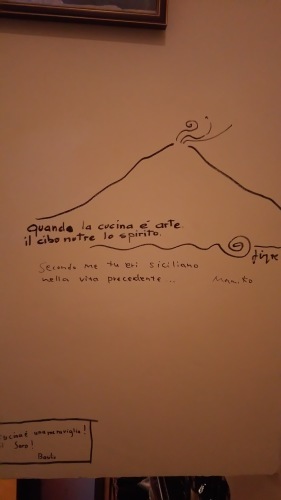 quando la cucina è arte.
il cibo nutre lo spirito.
Secondo me tu eri siciliano
nella vita precedente...
cucina è una meraviglia!
Sarò!
Paolo